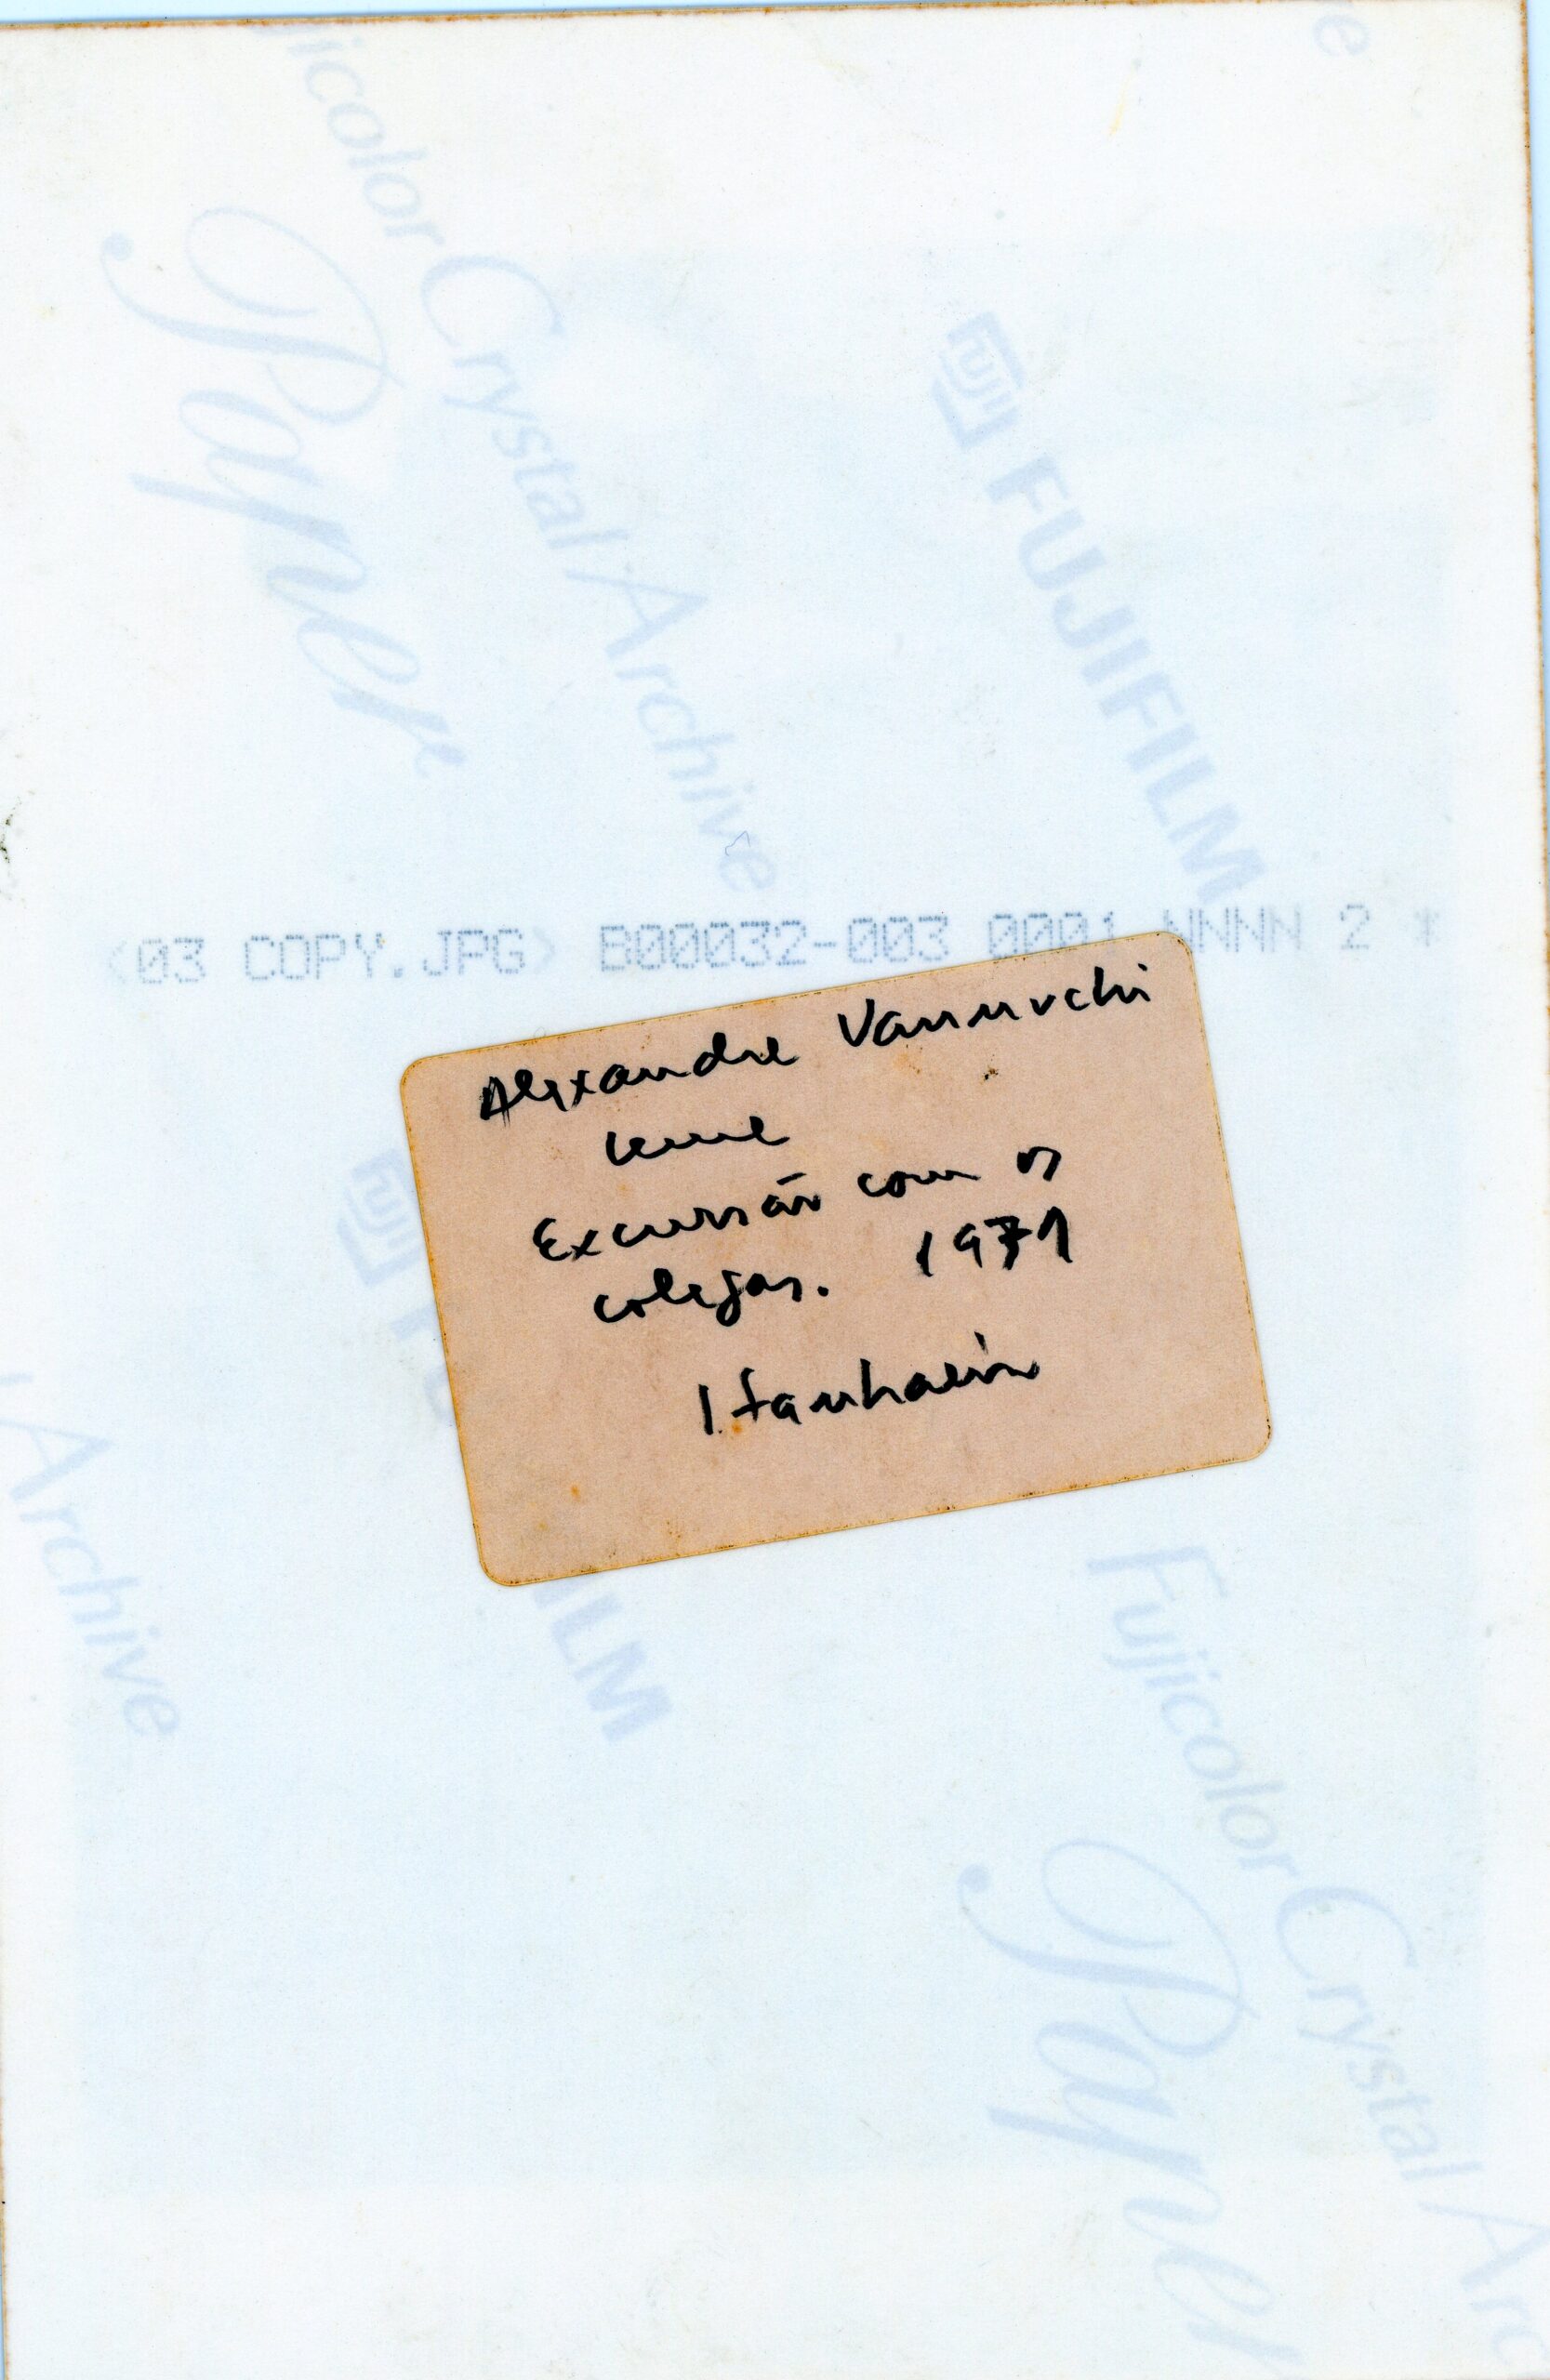 ujicolor Crystal Archive
Paper
FUJIFILM
<03 COPY.JPG> B00032-003 0001 NNNN 2 *
Alexandre Vannucchi
Leme
Excursão com os
colegas. 1971
Itanhaém
Archive
ILM
Fujicolor Crystal Arc
Paper